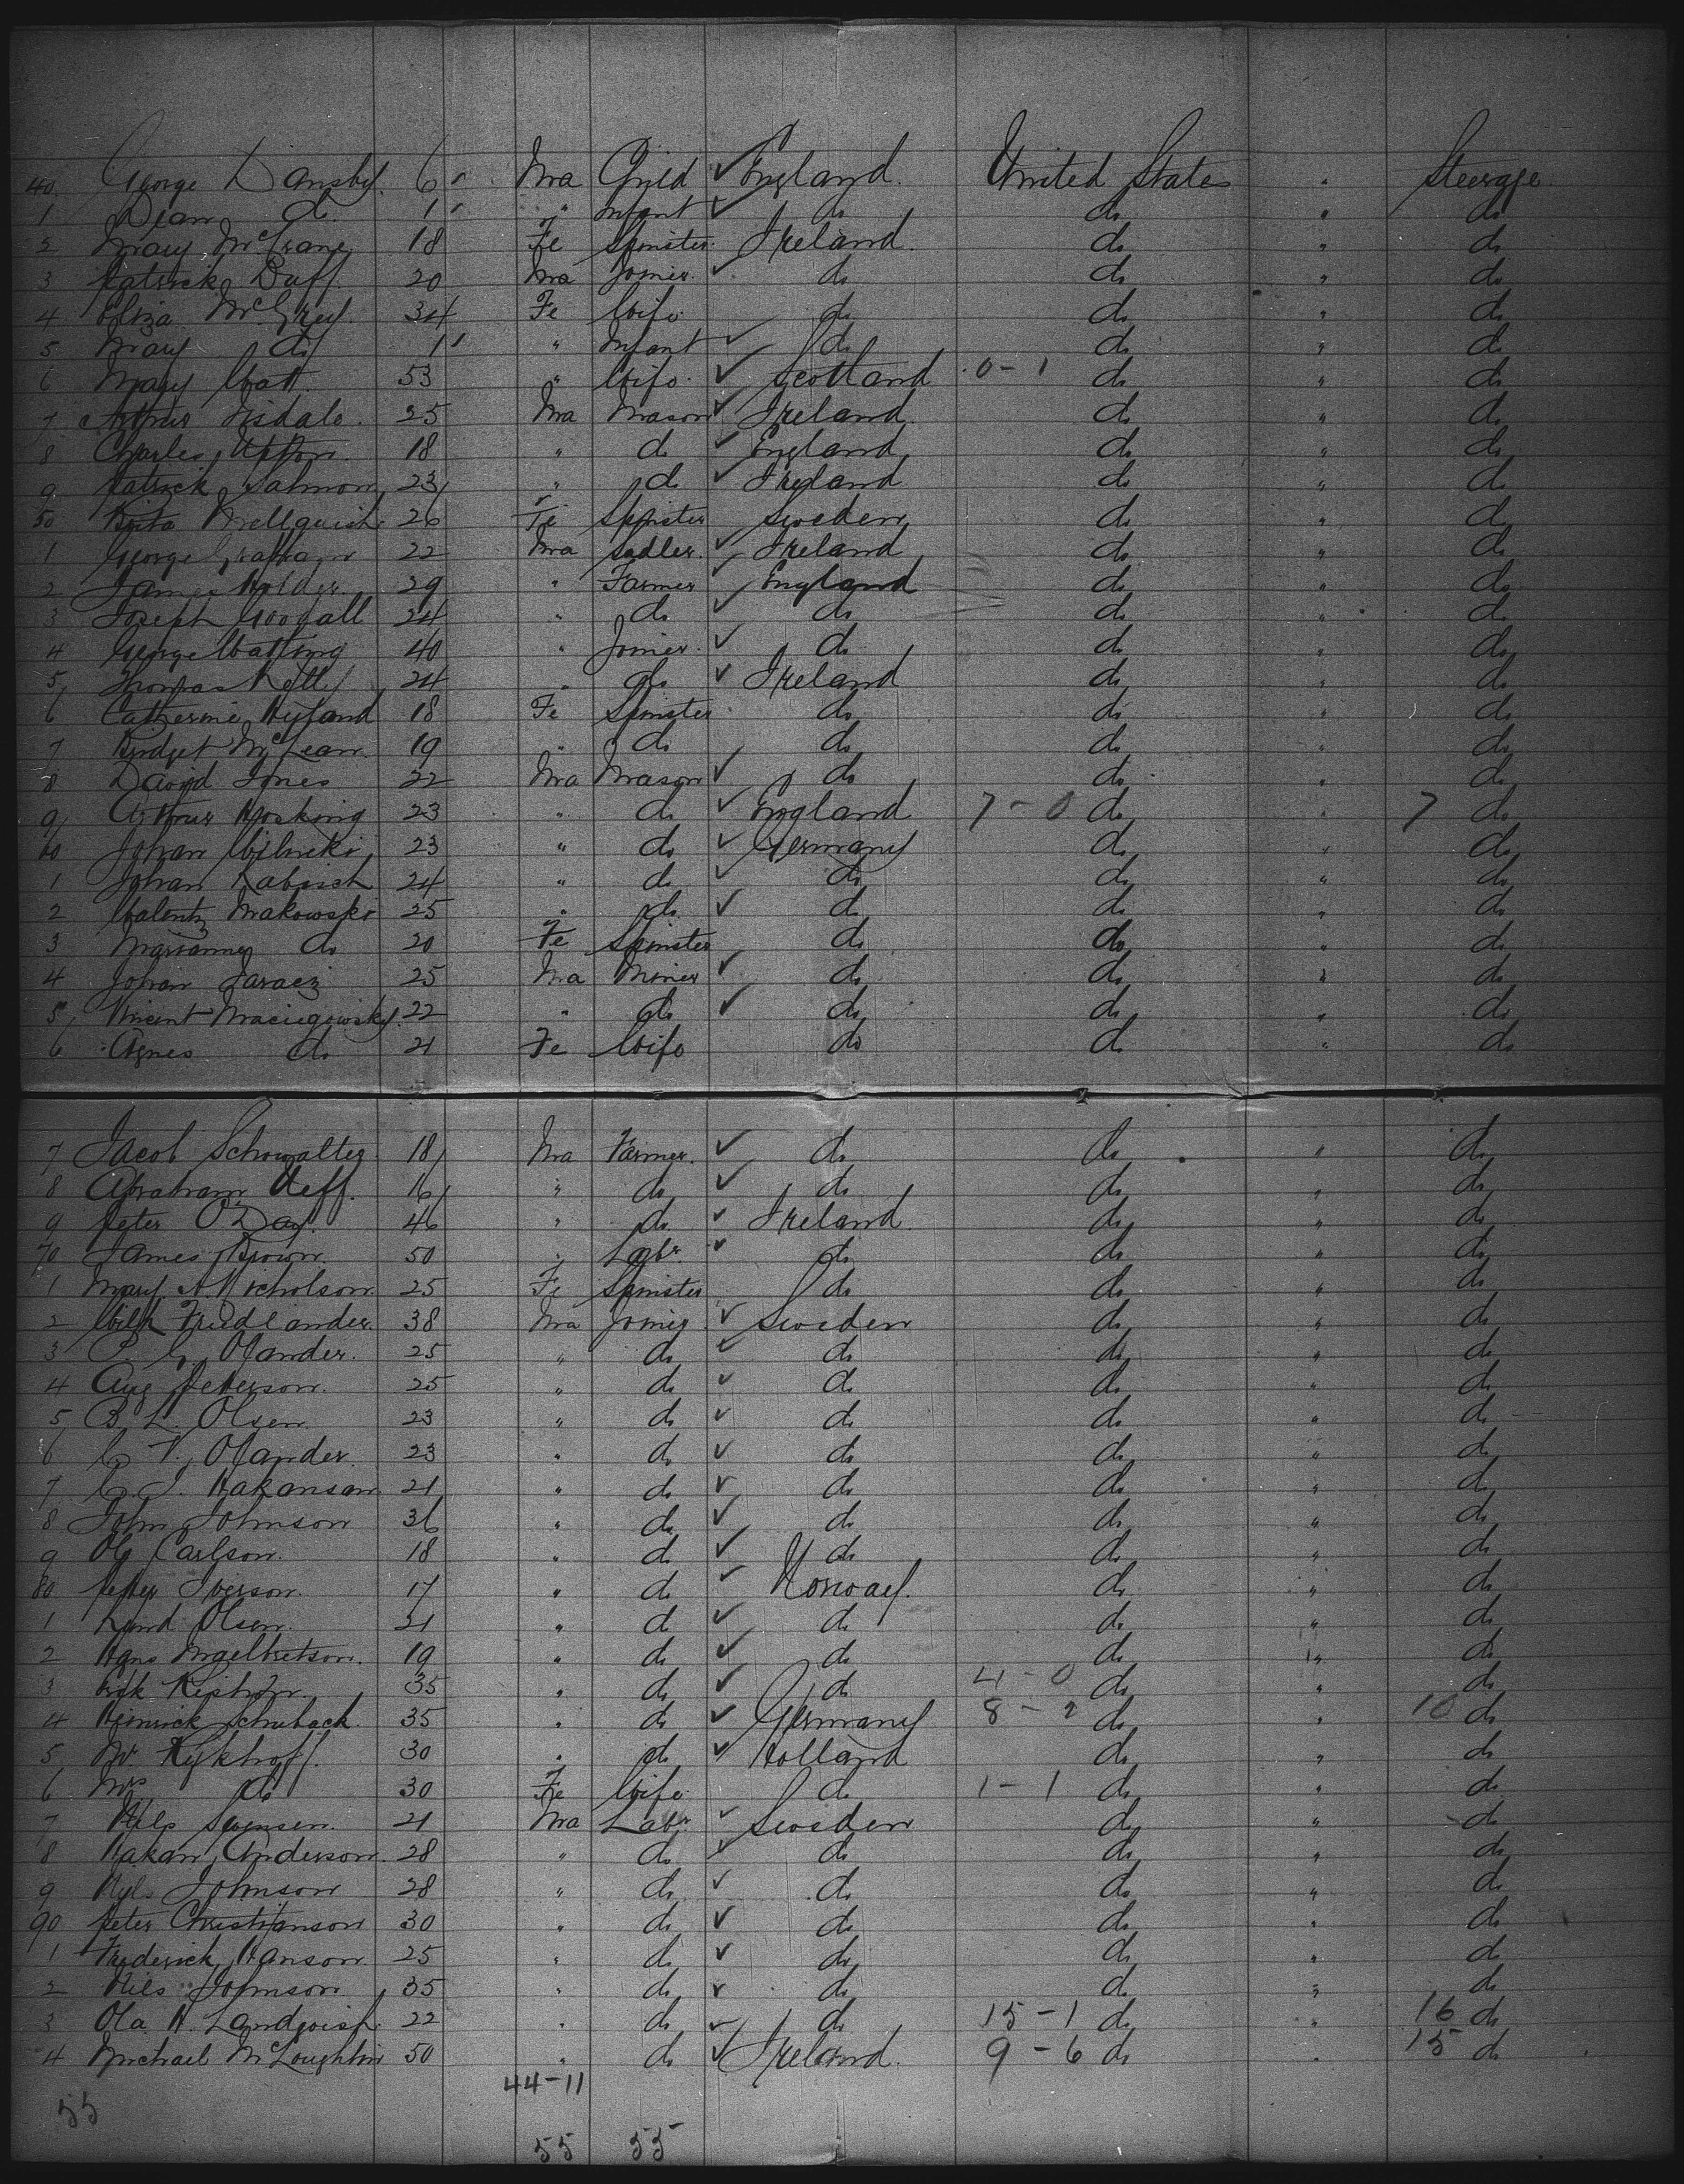 40. George Dansby. 6 " Ma Child ✓ England. United States " Steerage
1 Dean do. 1 " " Infant ✓ do do " do
2 Mary McCrane 18 Fe Spinster. Ireland. do " do
3 Patrick Duff. 20 Ma Joiner. ✓ do do " do
4 Eliza McGrey. 34 Fe Wife. do do " do
5 Mary do 1 " " Infant ✓ do do " do
6 Mary Watt. 53 " Wife. ✓ Scotland 0-1 do " do
7 Arthur Tisdale. 25 Ma Mason ✓ Ireland do " do
8 Charles Upton. 18 " do ✓ England do " do
9 Patrick Salmon 23 " do ✓ Ireland do " do
50 Mellquist 26 Fe Spinster Sweden do " do
1 George Graham 22 Ma Sadler. ✓ Ireland do " do
2 James Holder. 29 " Farmer ✓ England do " do
3 Joseph Woodall 24 " do ✓ do do " do
4 George Watting 40 " Joiner. ✓ do do " do
5 Thomas Kelly 24 " do ✓ Ireland do " do
6 Catherine Hyland 18 Fe Spinster do do " do
7 Bridget McLean. 19 " do do do " do
8 David Jones 22 Ma Mason ✓ do do " do
9 Arthur Hosking 23 " do ✓ England 7-0 do " 7 do
60 Johan Wilnski 23 " do ✓ Germany do " do
1 Johan 24 " do ✓ do do " do
2 Walentz Makowski 25 " do ✓ do do " do
3 Marianne do 20 Fe Spinster do do " do
4 Johan 25 Ma Miner ✓ do do " do
5 Vincent 22 " do ✓ do do " do
6 Agnes do 21 Fe Wife do do " do
7 Jacob Schowalter 18 Ma Farmer. ✓ do do " do
8 Abraham Neff. 16 " do ✓ do do " do
9 Peter O'Day. 46 " do ✓ Ireland do " do
70 James Brown. 50 " Labr. ✓ do do " do
1 Mary A. Nicholson 25 Fe Spinster do do " do
2 Wilh Friedlander. 38 Ma Joiner ✓ Sweden do " do
3 P. G. Olander. 25 " do ✓ do do " do
4 Aug Petterson. 25 " do ✓ do do " do
5 B. L. Olsen. 23 " do ✓ do do " do
6 C. V. Olander. 23 " do ✓ do do " do
7 C. J. Hakanson 21 " do ✓ do do " do
8 John Johnson 36 " do ✓ do do " do
9 Ole Carlson. 18 " do ✓ do do " do
80 Peter Iverson. 17 " do ✓ Norway. do " do
1 Olsen. 21 " do ✓ do do " do
2 Hans Ingelbretson. 19 " do ✓ do do " do
3 35 " do ✓ do 4-0 do " do
4 Heinrick Schuback. 35 " do ✓ Germany 8-2 do " 10 do
5 Mr. Rykhoff. 30 " do ✓ Holland do " do
6 Mrs do 30 Fe Wife. do 1-1 do " do
7 Nils Swensen. 21 Ma Labr ✓ Sweden do " do
8 Hakan Anderson. 28 " do ✓ do do " do
9 Nyls Johnson 28 " do ✓ do do " do
90 Peter Christianson 30 " do ✓ do do " do
1 Frederick Hanson. 25 " do ✓ do do " do
2 Nils Johnson 35 " do ✓ do do " do
3 Ola H. Landquist. 22 " do ✓ do 15-1 do " 16 do
4 Michael McLoughlin 50 " do ✓ Ireland. 9-6 do " 15 do
44-11
55
55 55